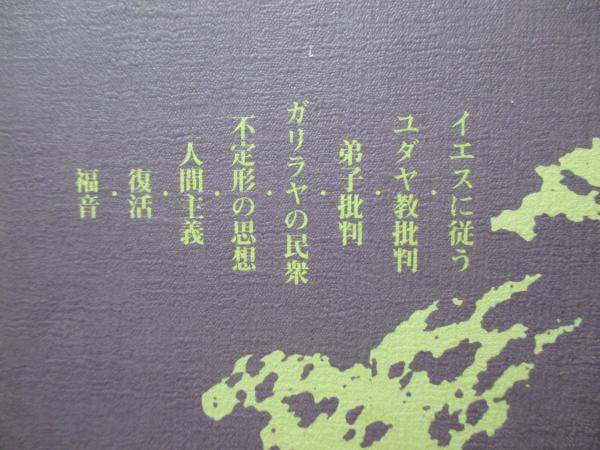 イエスに従う・
ユダヤ教批判・
弟子批判・
ガリラヤの民衆・
不定形の思想・
人間主義・
復活・
福音